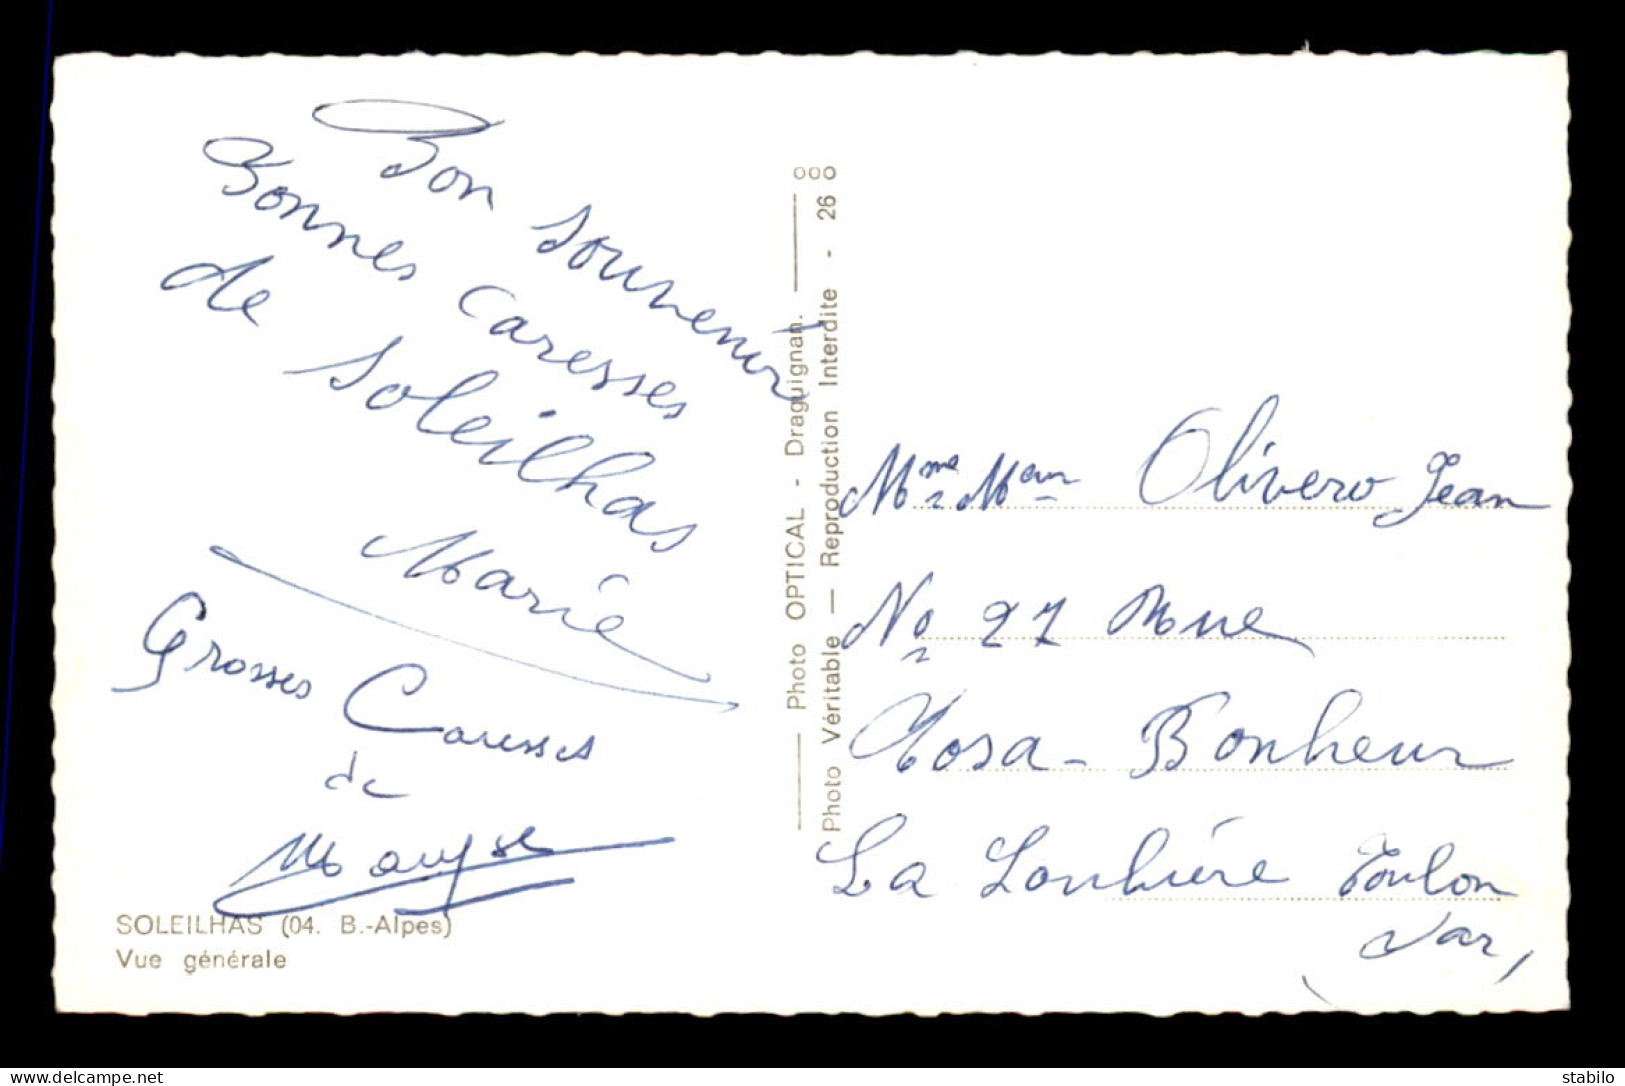 Bon souvenir
Bonnes Caresses
de Soleilhas
Marie
Grosses Caresses
de
SOLEILHAS (04. B.-Alpes)
Vue générale
Photo OPTICAL - Draguignan.
Photo Véritable — Reproduction Interdite - 26
Mme Meur Olivero Jean
No 27 Rue
Rosa-Bonheur
La Loubière Toulon
(Var)
delcampe.net
stabilo